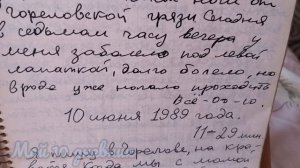 Гореловской грязи Сегодня
в седьмом часу вечера у
меня заболело под левой
лопаткой, долго болело, но
вроде уже начало проходить
Всё-оо-го.
10 июня 1989 года.
11-29 мин.
в Горелове, на кро-
мы с мамой